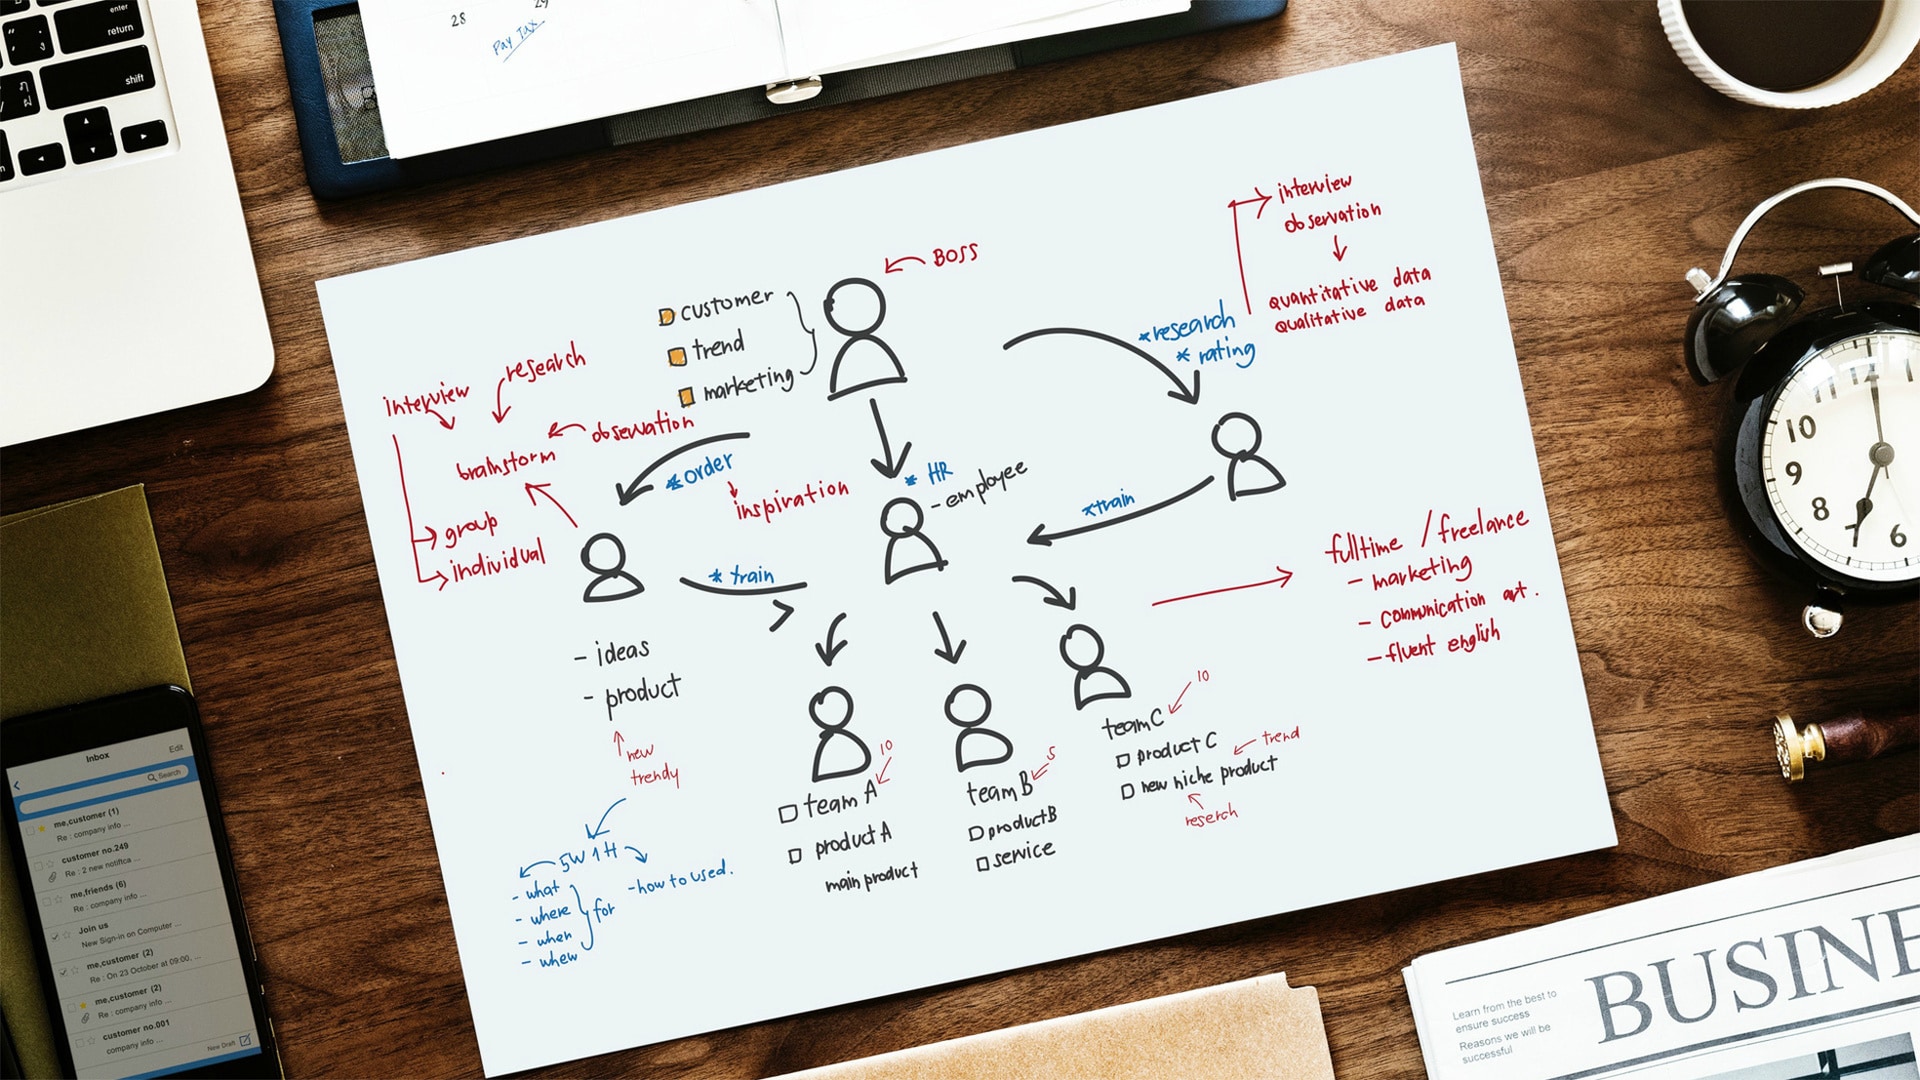 enter
return
shift
28
29
Pay Tax
BOSS
customer
trend
marketing
interview
observation
quantitative data
qualitative data
*research
* rating
interview
research
observation
brainstorm
group
individual
*order
inspiration
* HR
- employee
*train
* train
- ideas
- product
new
trendy
5W 1H
- what
- where
- when
- whew
for
-how to used.
fulltime / freelance
- marketing
- communication art.
- fluent english
10
team A
product A
main product
5
team B
product B
service
10
team C
product C
trend
new niche product
reserch
12
10
9
8
6
Inbox
Edit
Search
me,customer (1)
Re : company info ...
customer no.249
Re : 2 new notifica ...
me,friends (6)
Re : company info ...
Join us
New Sign-in on Computer ...
me,customer (2)
Re : On 23 October at 09:00, ...
me,customer (2)
Re : company info ...
customer no.001
company info ...
New Draft
BUSINE
Learn from the best to
ensure success
Reasons we will be
successful